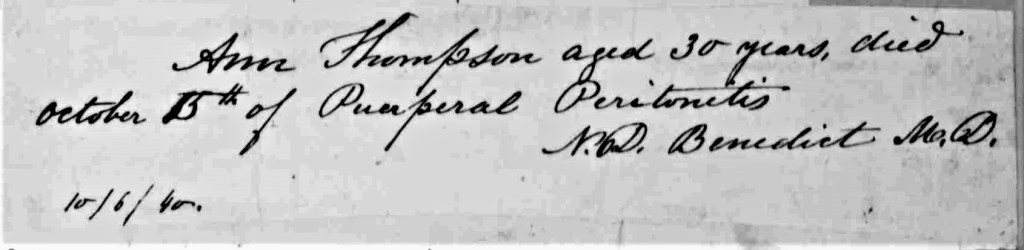 Ann Thompson aged 30 years, died
october 5th of Puerperal Peritonitis
N.D. Benedict M.D.
10/6/40.